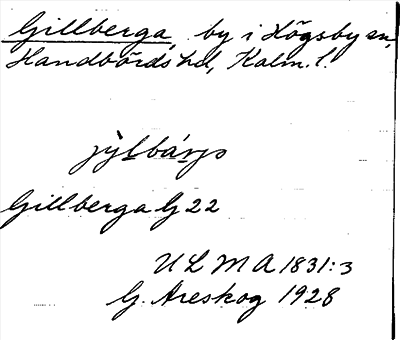 Gillberga, by i Högsby sn,
Handbörds hd, Kalm. l.
Gillberga G 22
ULMA 1831:3
G. Areskog 1928